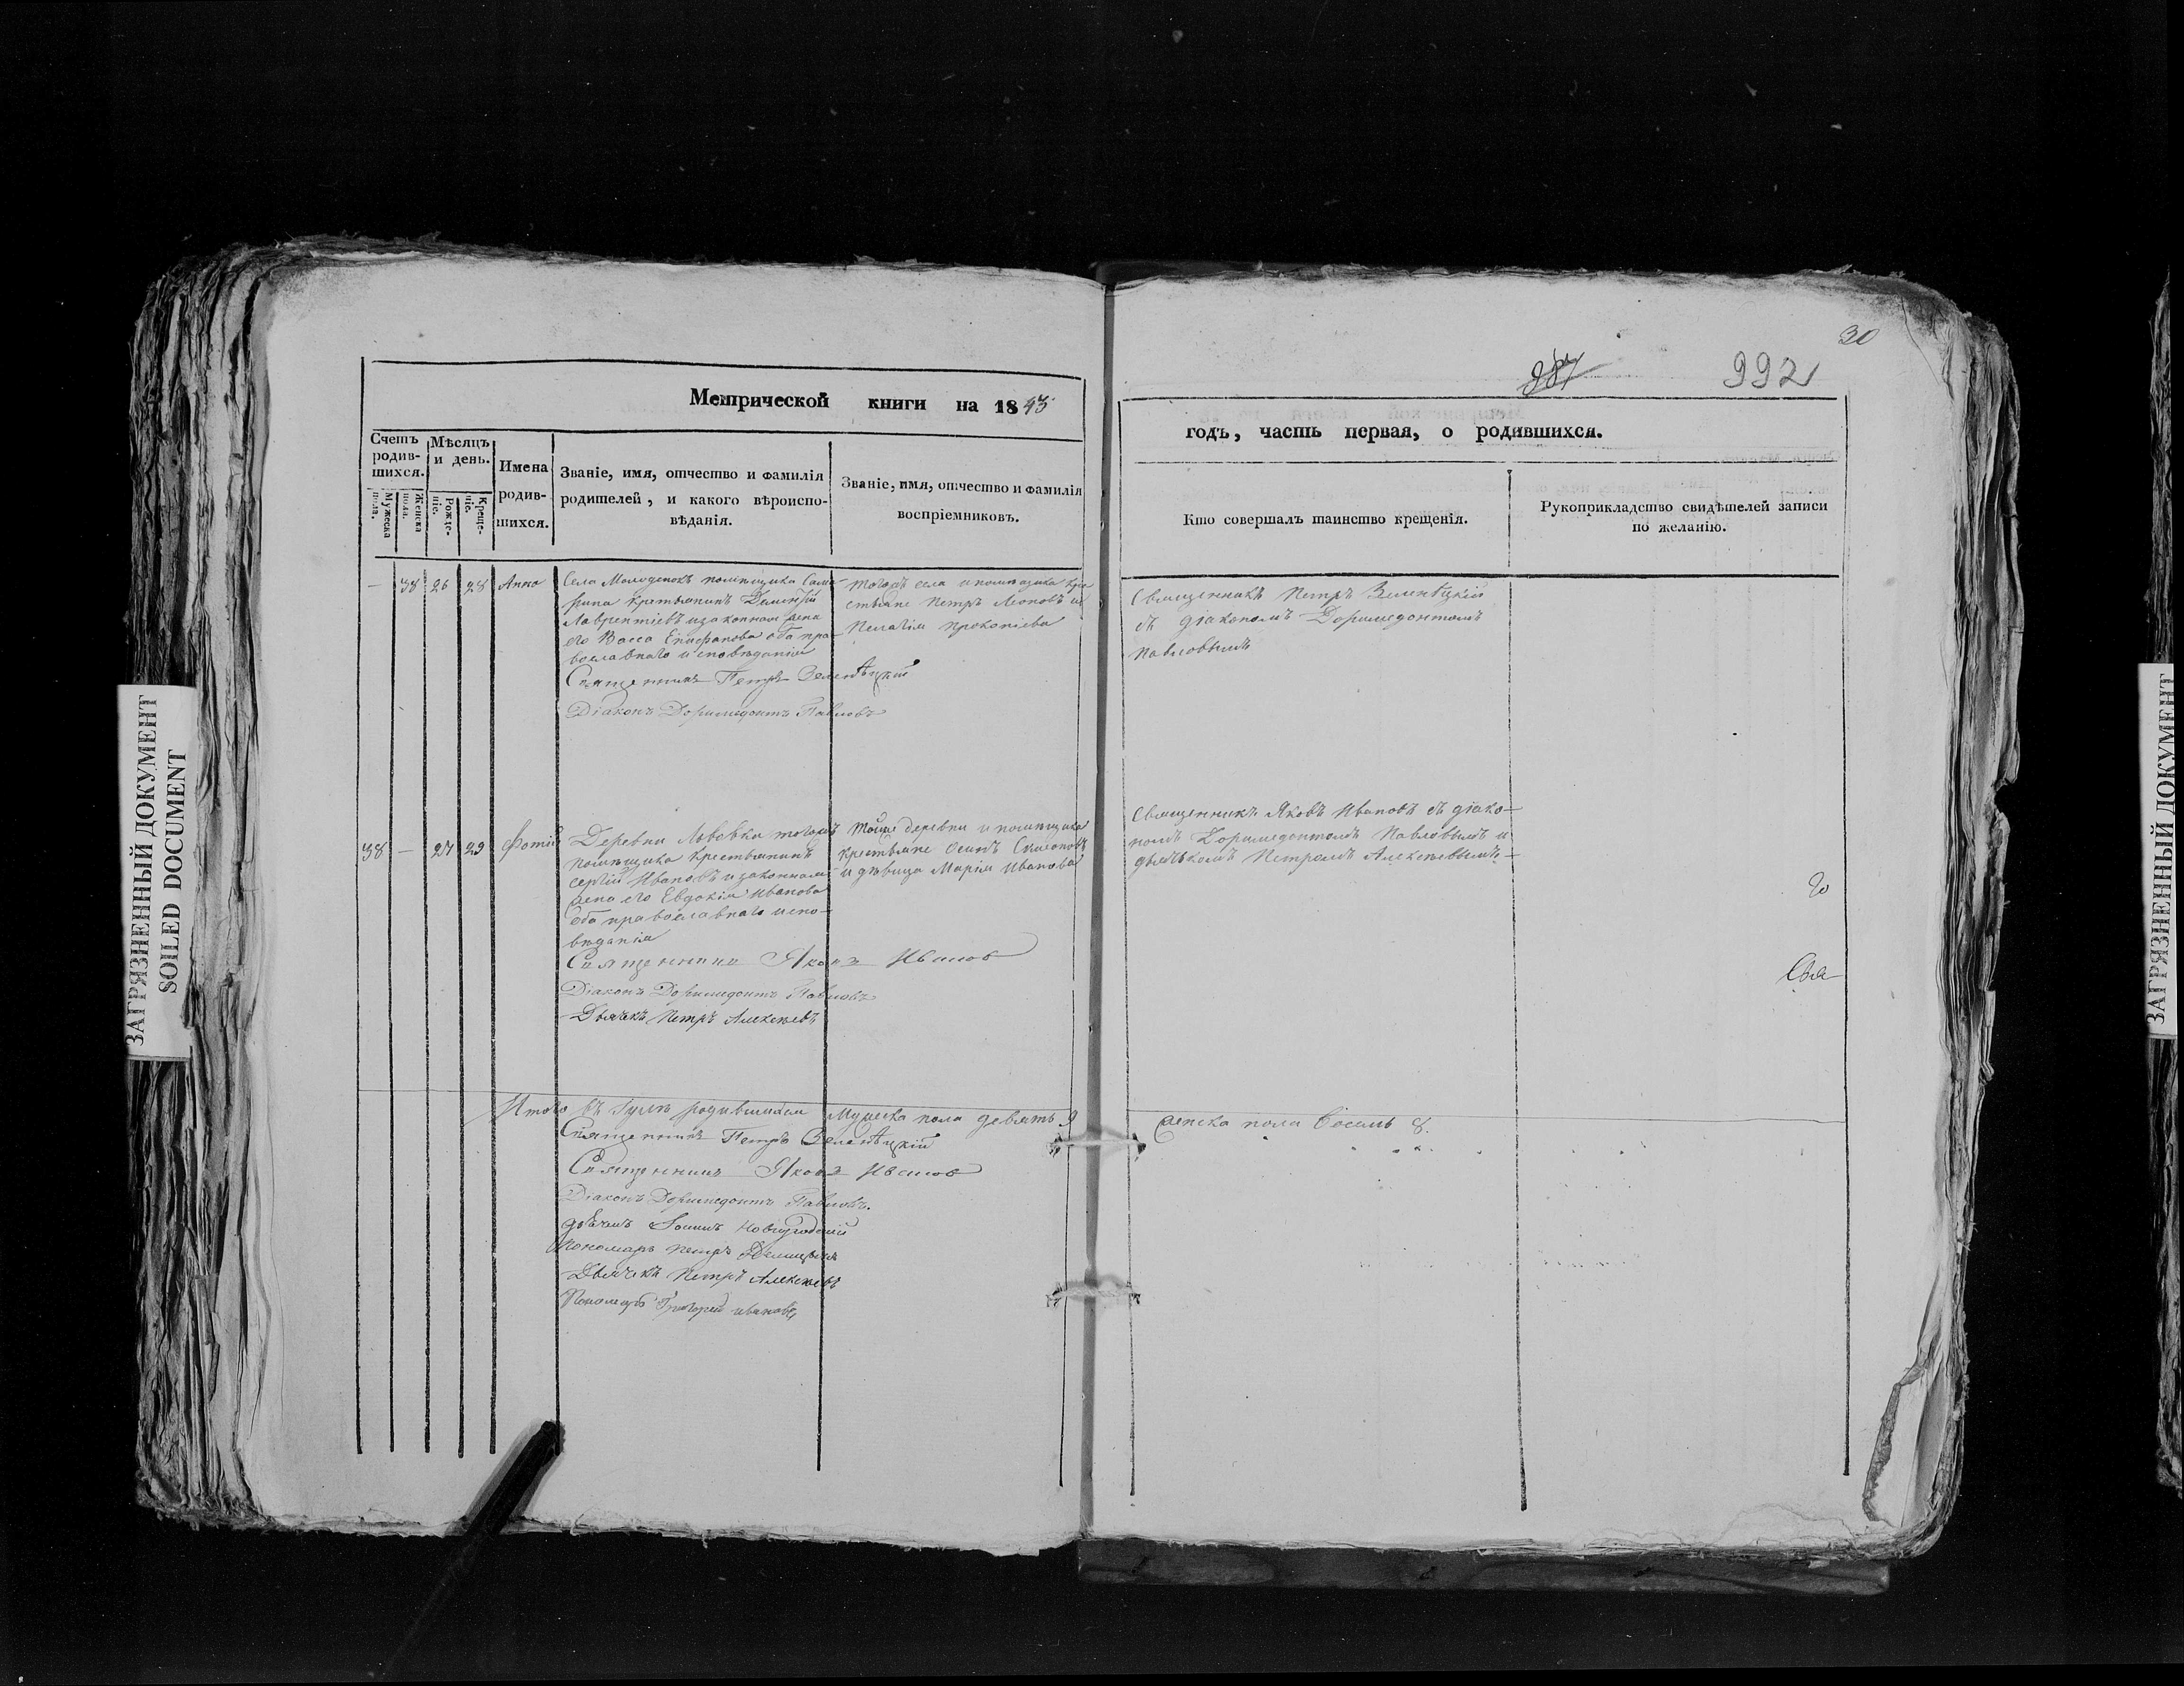 30
987
992
Метрической книги на 1843
годъ, часть первая, о родившихся.
Счетъ родившихся.
Мужеска пола.
Женска пола.
Мѣсяцъ и день.
Рожденіе.
Крещеніе.
Имена родившихся.
Званіе, имя, отчество и фамилія
родителей, и какого вѣроиспо-
вѣданія.
Званіе, имя, отчество и фамилія
воспріемниковъ.
Кто совершалъ таинство крещенія.
Рукоприкладство свидѣтелей записи
по желанію.
— 38 26 28 Анна
Села Молоденокъ помѣщика Сама-
рина крестьянинъ Димитрій
Лаврентіевъ и законная жена
его Васса Епифанова оба пра-
вославнаго исповѣданія
Священникъ Петръ Зеленѣцкій
Діаконъ Доримедонтъ Павловъ
тогожъ села и помѣщика кре-
стьяне Петръ Леоновъ и
Пелагія Прокопіева
Священникъ Петръ Зеленѣцкій
съ діакономъ Доримедонтомъ
Павловымъ
38 — 27 29 Фотій
Деревни Лововки тогожъ
помѣщика крестьянинъ
Сергій Ивановъ и законная
жена его Евдокія Иванова
оба православнаго испо-
вѣданія
Священникъ Яковъ Ивановъ
Діаконъ Доримедонтъ Павловъ
Дьячекъ Петръ Алексѣевъ
Тойже деревни и помѣщика
крестьяне Осипъ Симоновъ
и дѣвица Марія Иванова
Священникъ Яковъ Ивановъ съ діако-
номъ Доримедонтомъ Павловымъ и
дьячкомъ Петромъ Алексѣевымъ
го
Свя
Итого въ Іулѣ родившихся Мужеска пола девять 9
женска пола восемь 8.
Священникъ Петръ Зеленѣцкій
Священникъ Яковъ Ивановъ
Діаконъ Доримедонтъ Павловъ.
дьячекъ
Пономарь Петръ
Дьячекъ Петръ Алексѣевъ
Пономарь Григорій Ивановъ
ЗАГРЯЗНЕННЫЙ ДОКУМЕНТ
SOILED DOCUMENT
ЗАГРЯЗНЕННЫЙ ДОКУМЕНТ